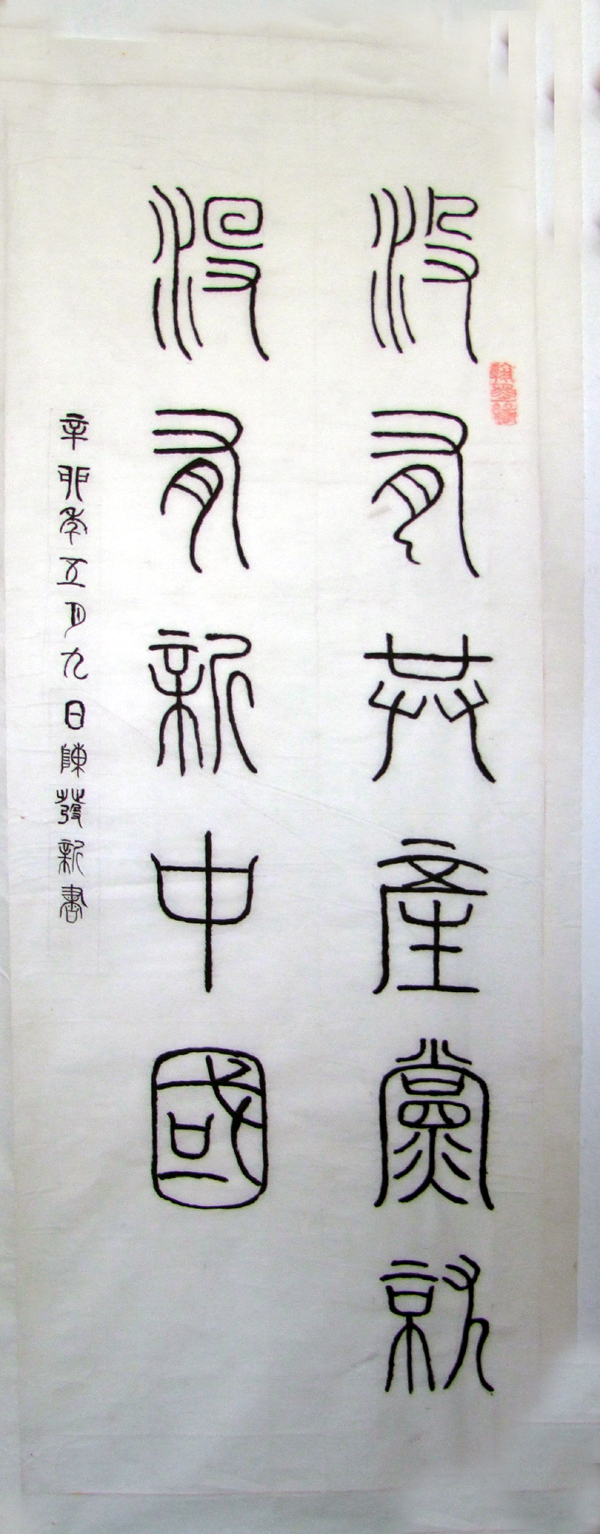 沒有共產黨就
沒有新中國
辛卯年五月九日陳發新書